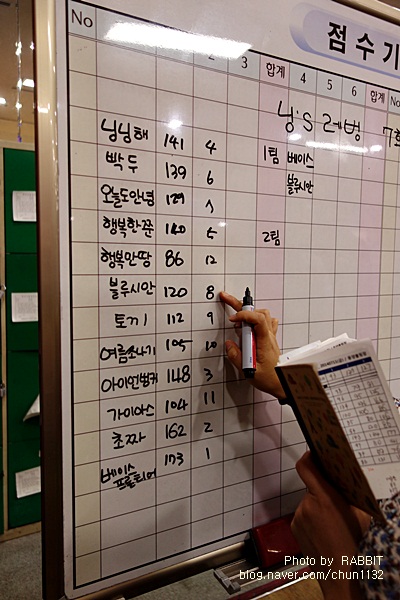 점 수 기
No 2 3 합계 4 5 6 합계 No
닝'S 레벙
닝닝해 141 4 1팀 베이스
빡두 139 6 블루시안
오늘도안녕 129 7
행복한쭌 140 5 2팀
행복만땅 86 12
블루시안 120 8
토끼 112 9
여름소나기 105 10
아이언벙커 148 3
가이아스 104 11
초짜 162 2
베이스 173 1
프론티어
Photo by RABBIT
blog.naver.com/chun1132